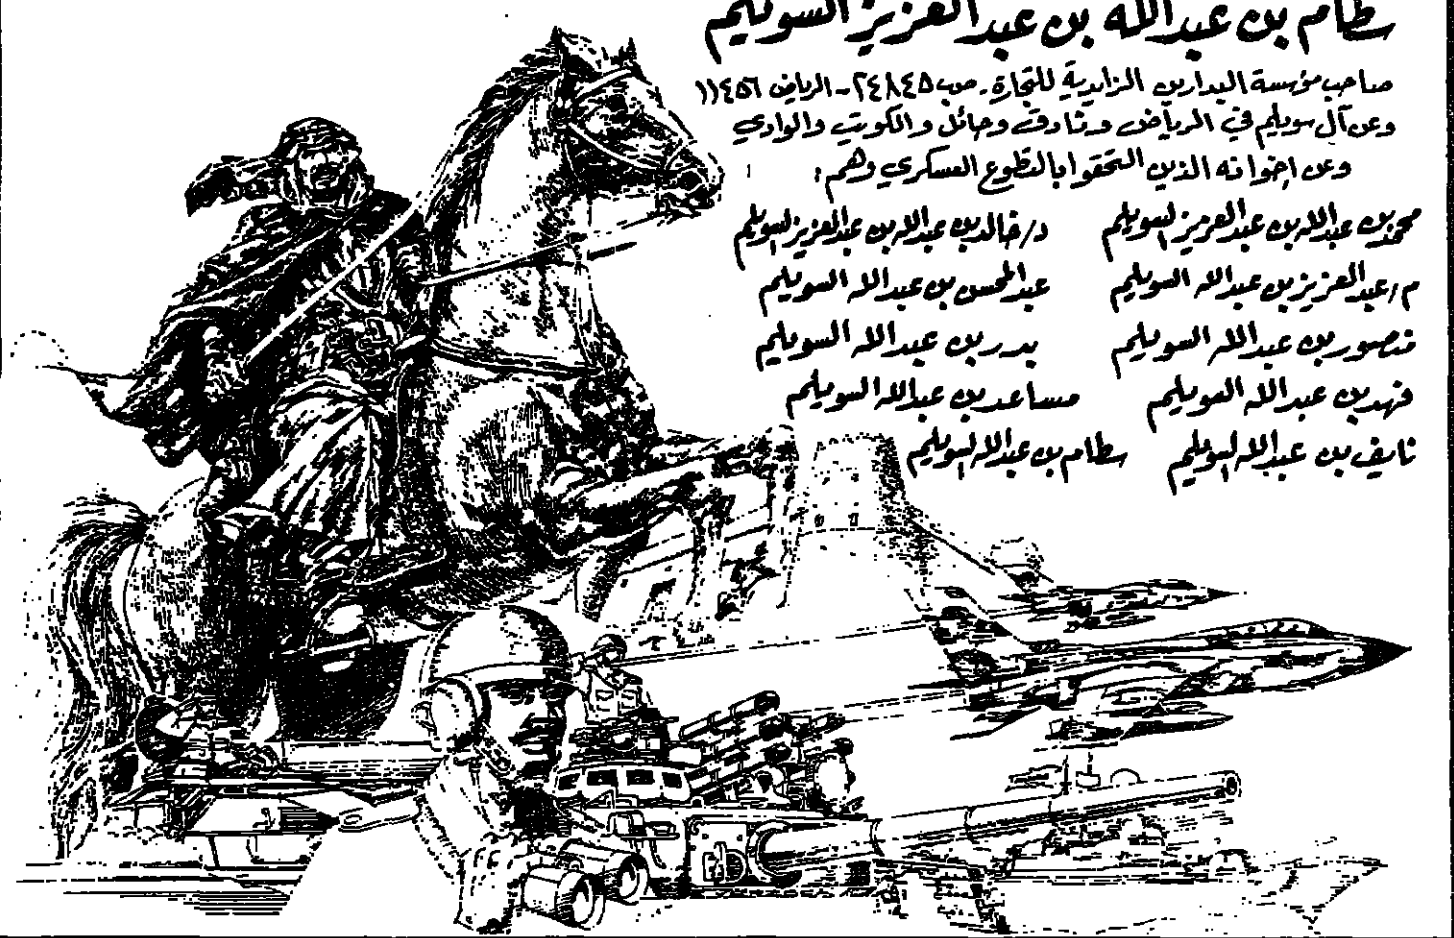 سطام بن عبدالله بن عبدالعزيز السويلم
صاحب مؤسسة البدارين الزايدية للتجارة - ص ب ٢٤٨٤٥ - الرياض ١١٤٥٦
وعن آل سويلم في الرياض وثادق وحائل والكويت والوادي
وعن اخوانه الذين التحقوا بالتطوع العسكري وهم :
محمد بن عبدالله بن عبدالعزيز السويلم د/خالد بن عبدالله بن عبدالعزيز السويلم
م/عبدالعزيز بن عبدالله السويلم عبدالمحسن بن عبدالله السويلم
منصور بن عبدالله السويلم بدر بن عبدالله السويلم
فهد بن عبدالله السويلم مساعد بن عبدالله السويلم
نايف بن عبدالله السويلم سطام بن عبدالله السويلم